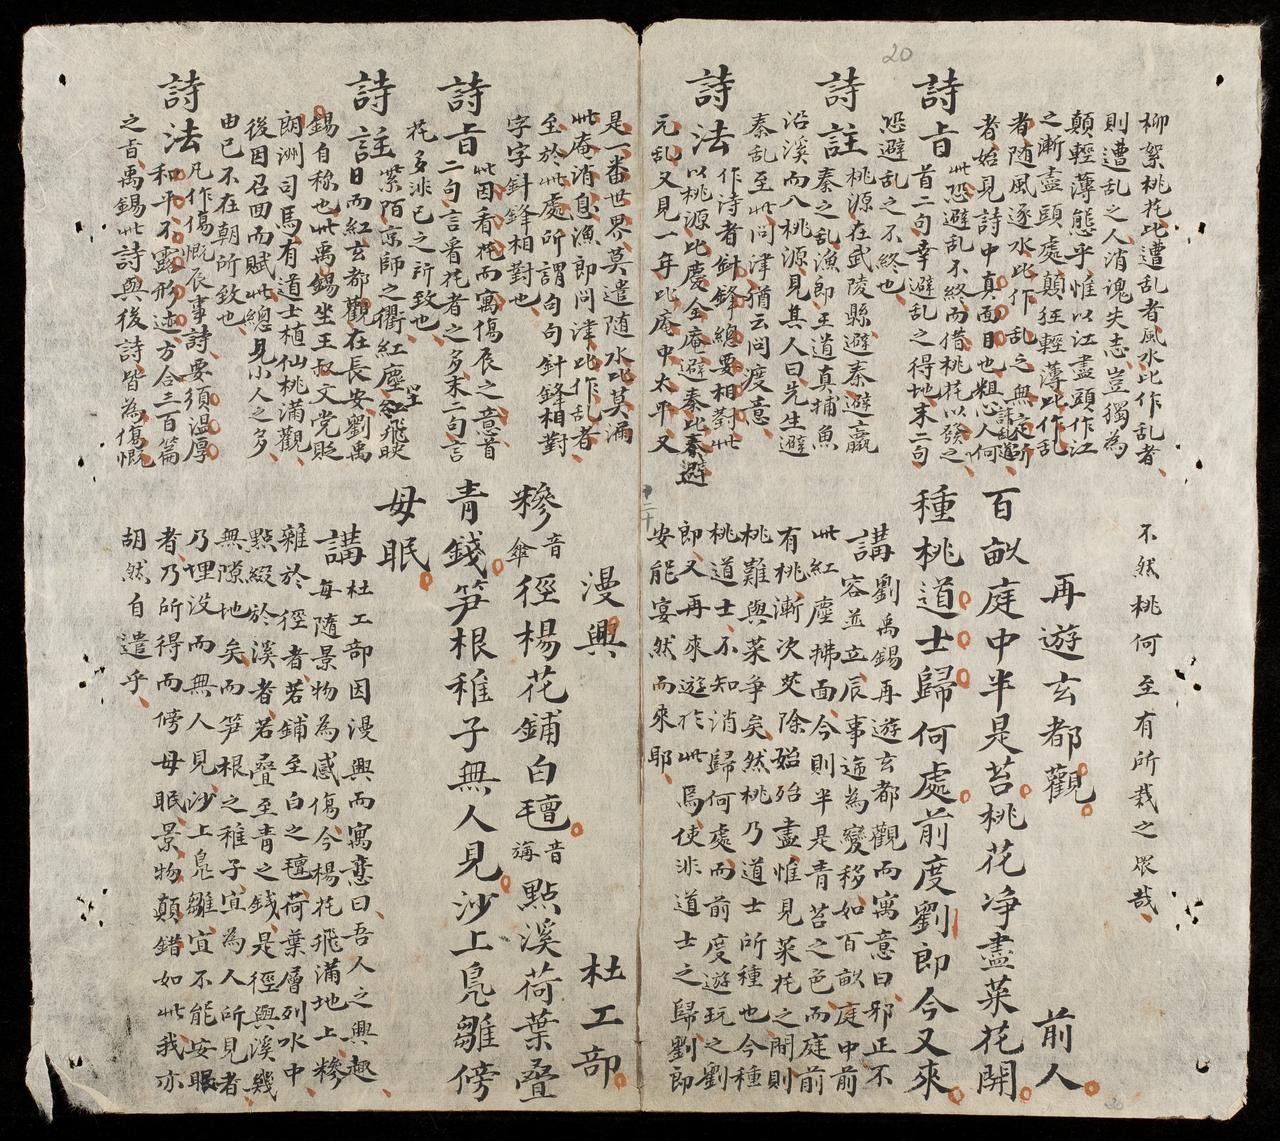 柳絮桃花比遭乱者風水比作乱者
則遭乱之人消魂失志豈獨為
顛輕薄態乎惟以江盡頭作江
之漸盡頭處顛狂輕薄比作乱
者随風逐水比作乱之無定所
者始見詩中真面目也粗心人何
此恐避乱不終而借桃花以發之
詩旨
首二句幸避乱之得地末二句
恐避乱之不終也
詩註
桃源在武陵縣避秦避嬴
秦之乱漁郎王道真捕魚
沿溪而入桃源見其人曰先生避
秦乱至此問津猶云問渡意
詩法
作诗者針鋒總要相對此
以桃源比慶全庵避秦比秦避
元乱又見一年比庵中太平又
是一番世界莫遣随水比莫漏
此庵消息漁郎問津比作乱者
至於此處所謂句句針鋒相對
字字針鋒相對也
詩旨
此因看花而寓傷辰之意首
二句言看花者之多末二句言
花多非已之所致也
詩註
紫陌京師之衢紅塵紅塵飛映
日而紅玄都觀在長安劉禹
錫自称也此禹錫坐王叔文党貶
朗洲司馬有道士植仙桃滿觀
後因召回而賦此總見小人之多
由已不在朝所致也
詩法
凡作傷慨辰事詩要須温厚
和平不露形迹方合三百篇
之旨禹錫此詩與後詩皆為傷慨
不然桃何至有所栽之眾哉
再遊玄都觀 前人
百畝庭中半是苔桃花净盡菜花開
種桃道士歸何處前度劉郎今又來
講
劉禹錫再遊玄都觀而寓意曰邪正不
容並立辰事迤為變移如百畝庭中前
此紅塵拂面今則半是青苔之色而庭前
有桃漸次芟除始殆盡惟見菜花之開則
桃難與菜争矣然桃乃道士所種也今種
桃道士不知消歸何處而前度遊玩之劉
郎又再來遊於此焉使非道士之歸劉郎
安能宴然而來耶
漫興 杜工部
糝音傘徑楊花鋪白氊音旃點溪荷葉叠
青錢笋根稚子無人見沙上鳧雛傍
母眠
講
杜工部因漫興而寓意曰吾人之興趣
每隨景物為感傷今楊花飛滿地上糝
雜於徑者若鋪至白之氊荷葉層列水中
點綴於溪者若叠至青之錢是徑與溪幾
無隙地矣而笋根之稚子宜為人所見者
乃埋没而無人見沙上鳧雛宜不能安眠
者乃所得而傍母眠景物顛錯如此我亦
胡然自遣乎
20